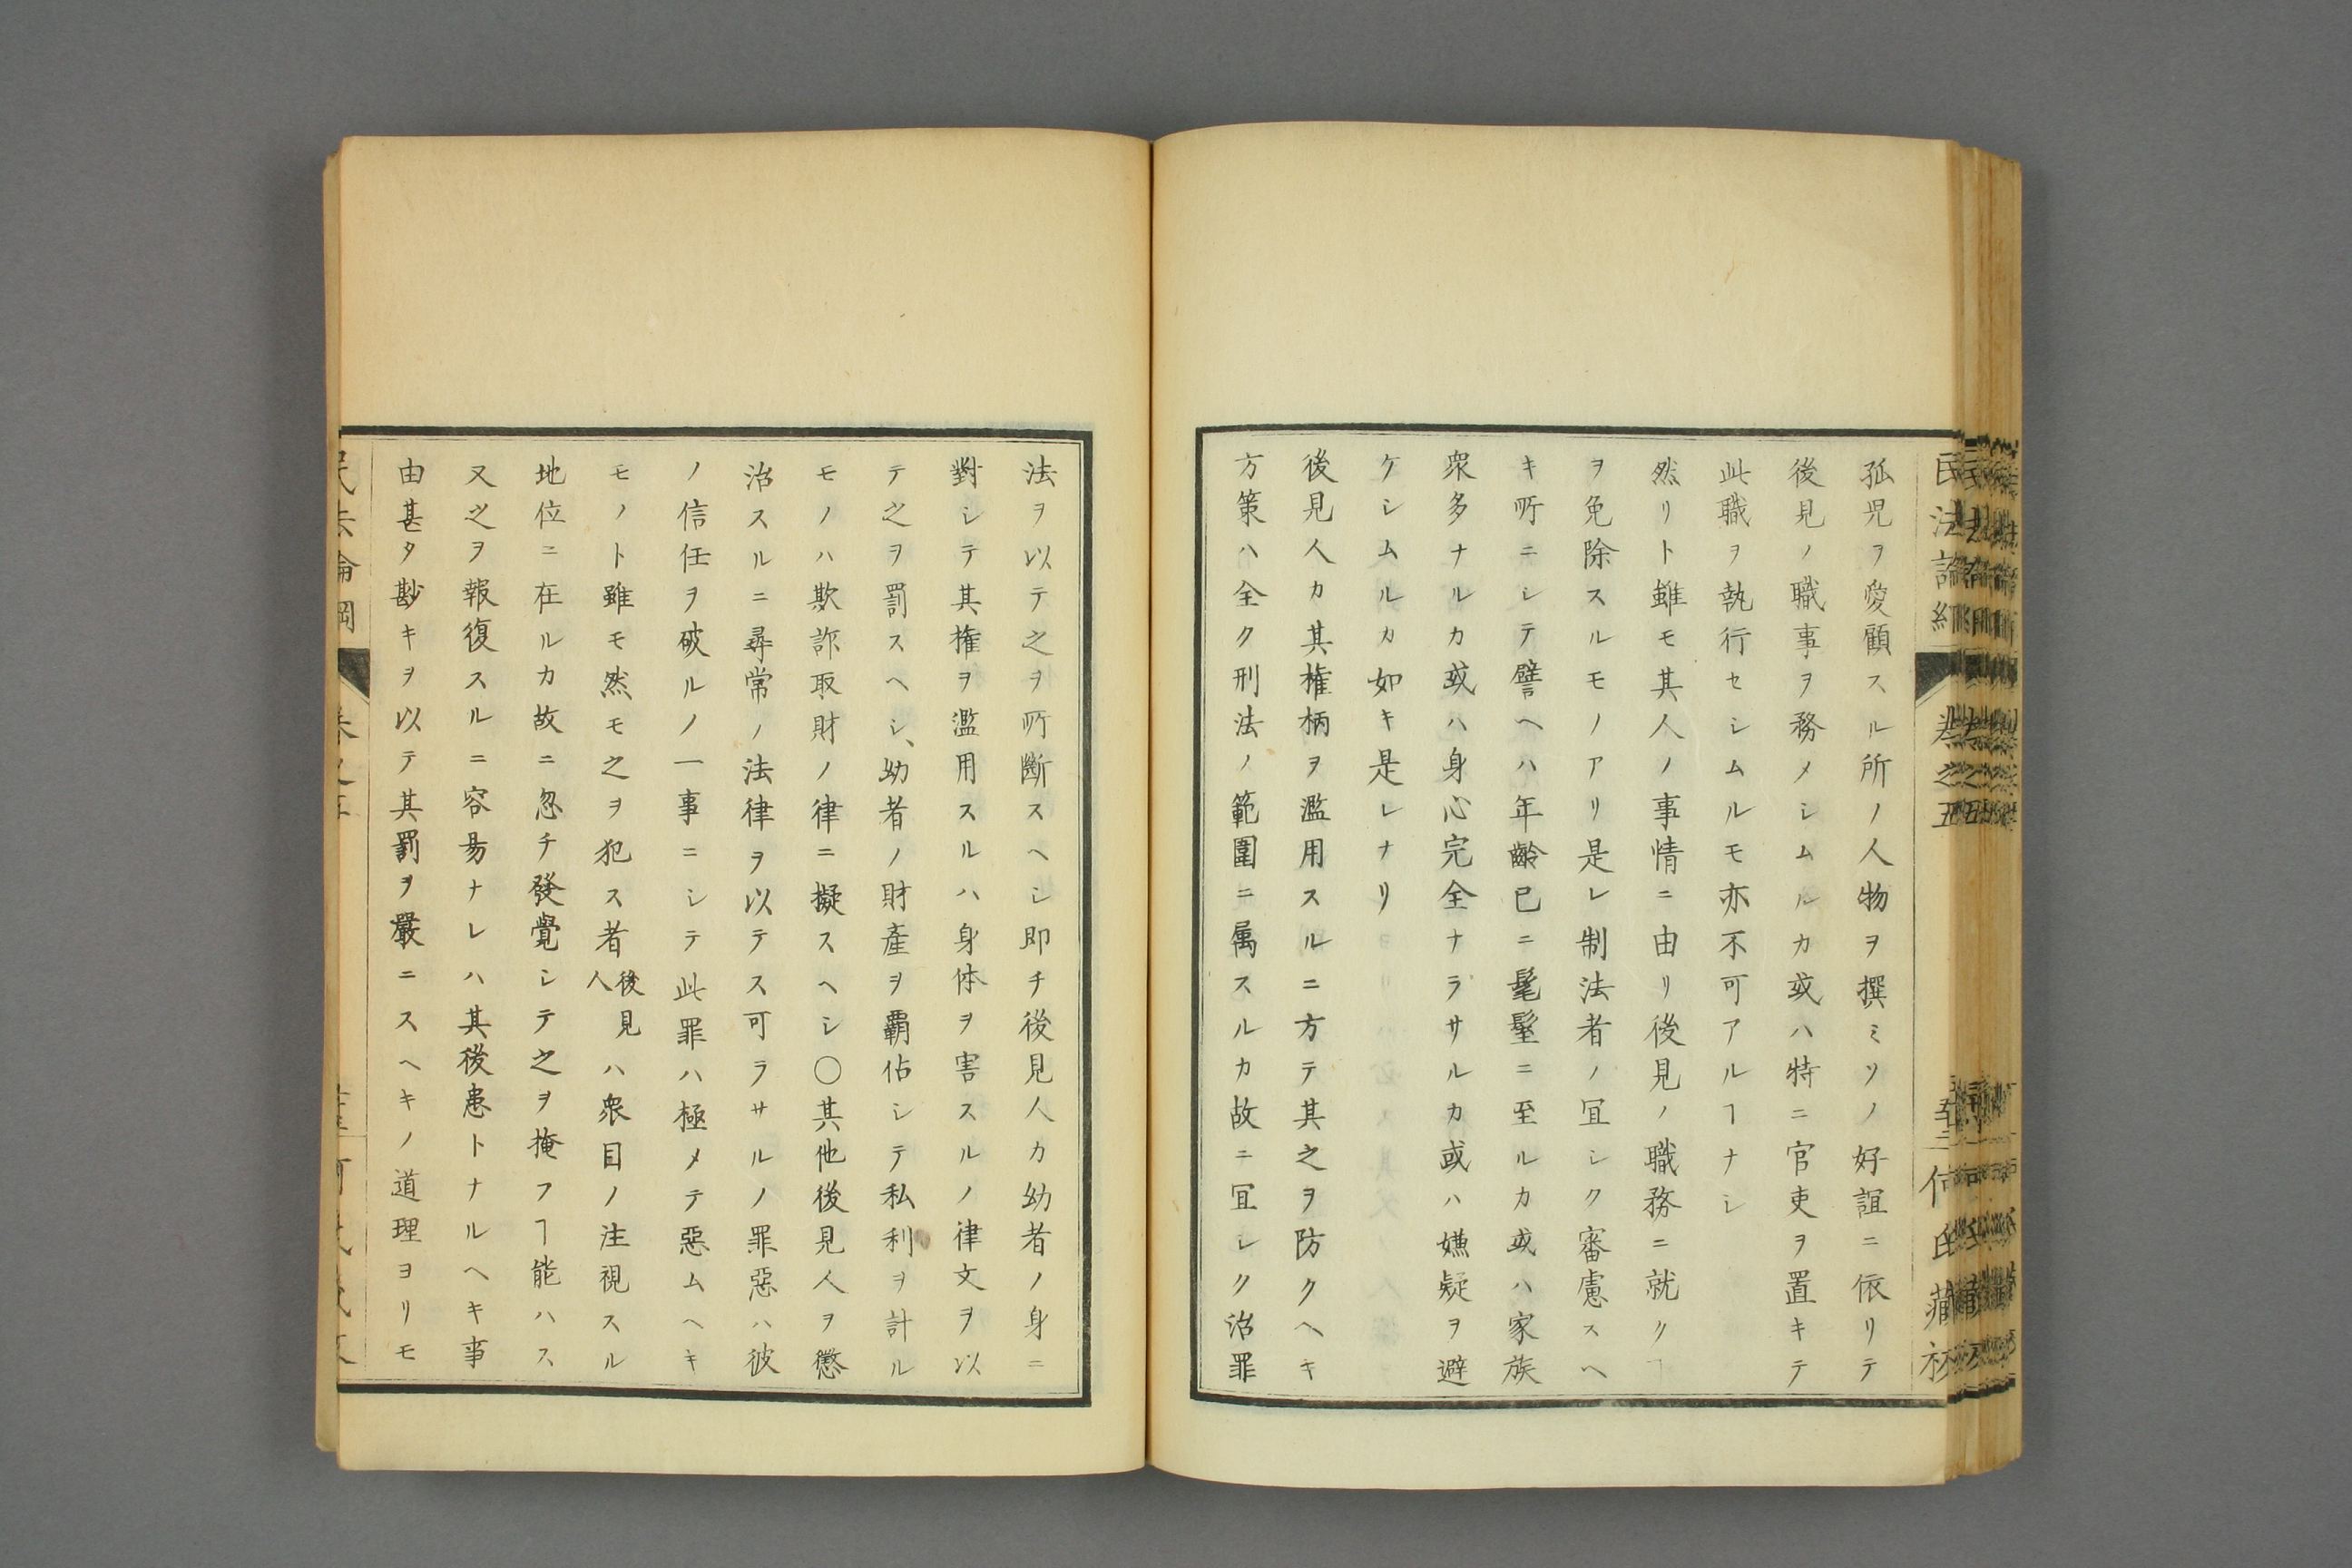 孤児ヲ愛顧スル所ノ人物ヲ撰ミソノ好誼ニ依リテ
後見ノ職事ヲ務メシムルカ或ハ特ニ官吏ヲ置キテ
此職ヲ執行セシムルモ亦不可アルヿナシ
然リト雖モ其人ノ事情ニ由リ後見ノ職務ニ就クヿ
ヲ免除スルモノアリ是レ制法者ノ冝シク審慮スヘ
キ所ニシテ譬ヘハ年齡已ニ髦䰂ニ至ルカ或ハ家族
衆多ナルカ或ハ身心完全ナラサルカ或ハ嫌疑ヲ避
ケシムルカ如キ是レナリ
後見人カ其権柄ヲ濫用スルニ方テ其之ヲ防クヘキ
方策ハ全ク刑法ノ範圍ニ属スルカ故ニ冝シク治罪
法ヲ以テ之ヲ所斷スヘシ即チ後見人カ幼者ノ身ニ
對シテ其権ヲ濫用スルハ身体ヲ害スルノ律文ヲ以
テ之ヲ罰スヘシ、幼者ノ財産ヲ覇佔シテ私利ヲ計ル
モノハ欺詐取財ノ律ニ擬スヘシ○其他後見人ヲ懲
治スルニ尋常ノ法律ヲ以テス可ラサルノ罪惡ハ彼
ノ信任ヲ破ルノ一事ニシテ此罪ハ極メテ惡ムヘキ
モノト雖モ然モ之ヲ犯ス者後見人ハ衆目ノ注視スル
地位ニ在ルカ故ニ忽チ發覺シテ之ヲ掩フヿ能ハス
又之ヲ報復スルニ容易ナレハ其後患トナルヘキ事
由甚タ尠キヲ以テ其罰ヲ嚴ニスヘキノ道理ヨリモ
民法論綱
卷之五
何氏藏